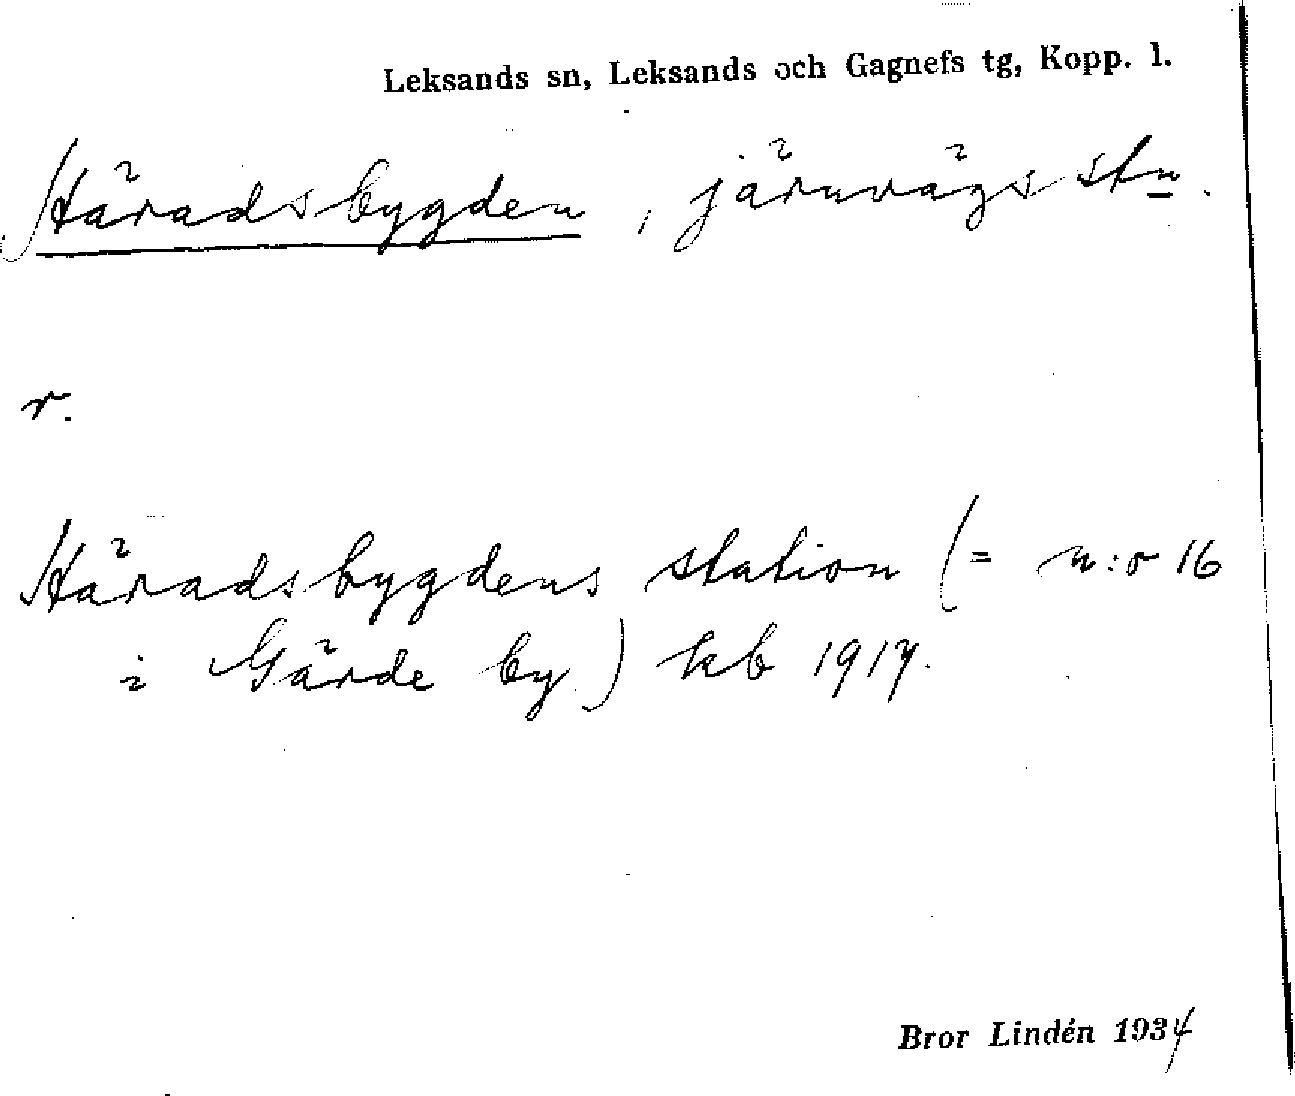 Leksands sn, Leksands och Gagnefs tg, Kopp. l.
Häradsbygden, järnvägsstn.
r.
Häradsbygdens station (= n:o 16
i Gärde by) kb 1917.
Bror Lindén 1934